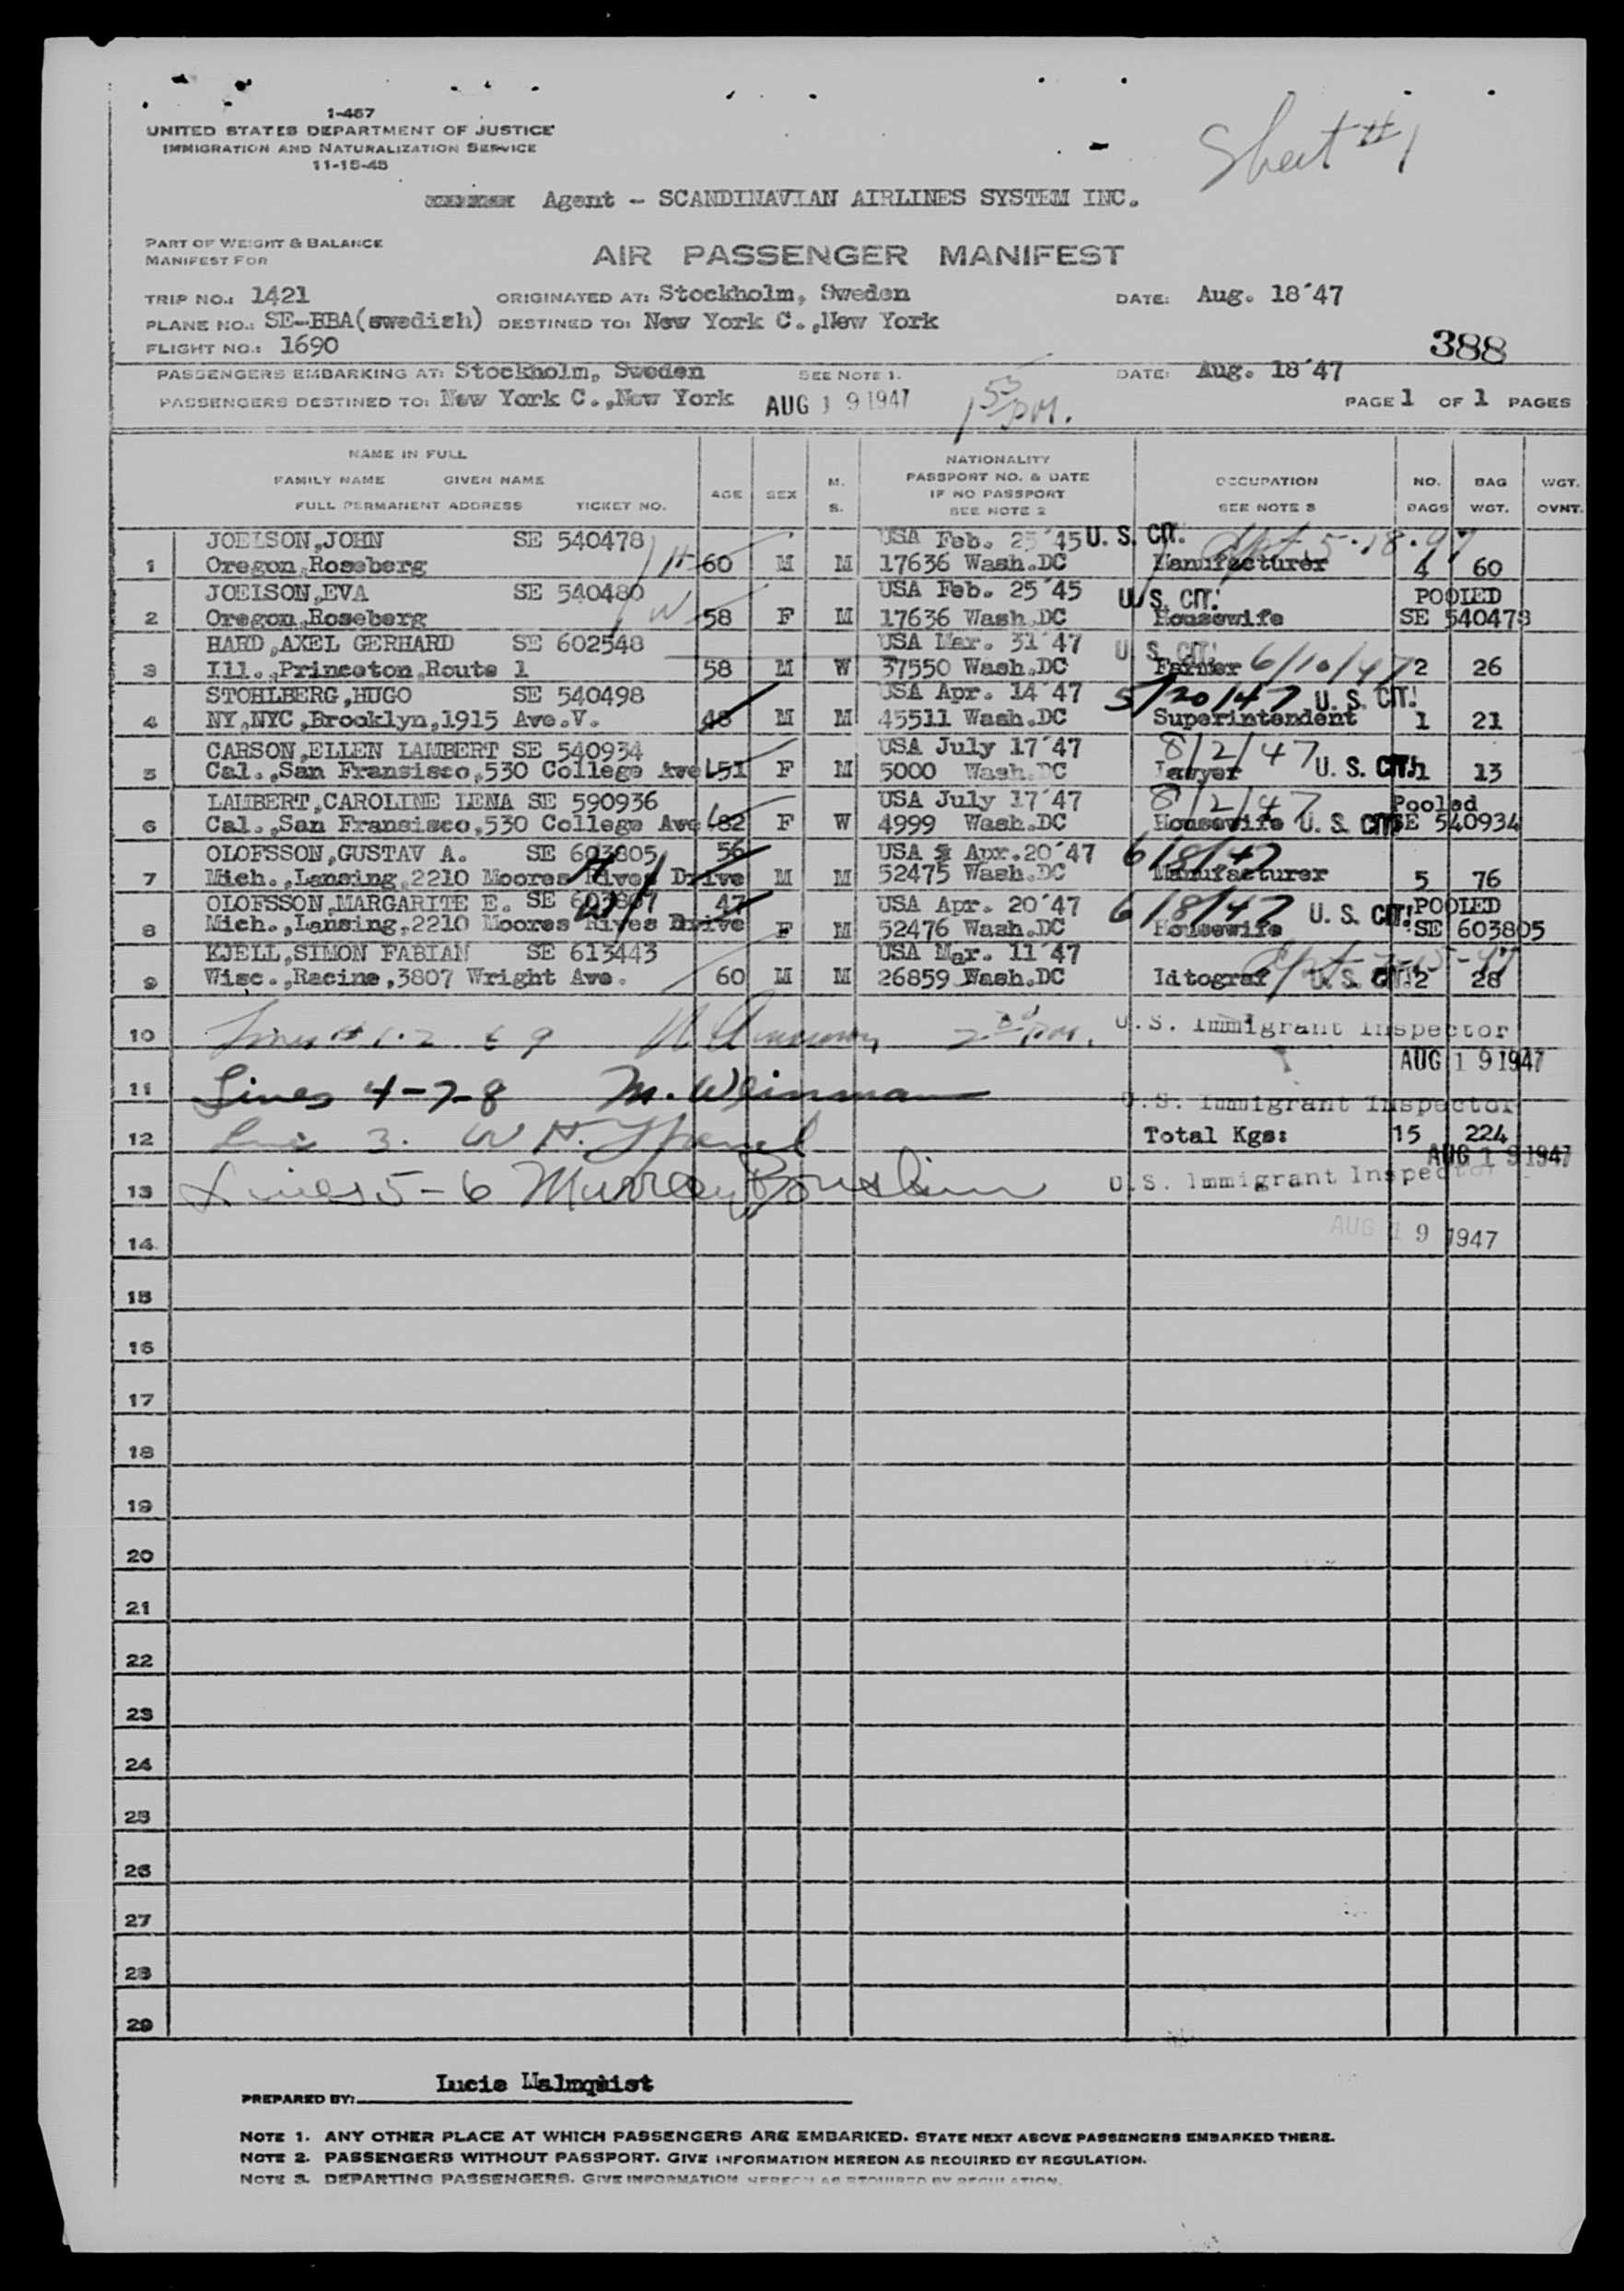 Sheet #1
1-467
UNITED STATES DEPARTMENT OF JUSTICE
IMMIGRATION AND NATURALIZATION SERVICE
11-15-45
Agent - SCANDINAVIAN AIRLINES SYSTEM INC.
PART OF WEIGHT & BALANCE
MANIFEST FOR
AIR PASSENGER MANIFEST
TRIP NO.: 1421 ORIGINATED AT: Stockholm, Sweden DATE: Aug. 18´47
PLANE NO.: SE-BBA(swedish) DESTINED TO: New York C.,New York
FLIGHT NO.: 1690 388
PASSENGERS EMBARKING AT: Stockholm, Sweden SEE NOTE 1. DATE: Aug. 18´47
PASSENGERS DESTINED TO: New York C.,New York AUG 19 1947 1 53 PM. PAGE 1 OF 1 PAGES
NAME IN FULL
FAMILY NAME GIVEN NAME
FULL PERMANENT ADDRESS TICKET NO. AGE SEX M. S. NATIONALITY PASSPORT NO. & DATE IF NO PASSPORT SEE NOTE 2 OCCUPATION SEE NOTE 3 NO. BAGS BAG WGT. WGT. OVNT.
JOELSON,JOHN SE 540478 USA Feb. 25´45 U. S. CIT. 5-18-47
1 Oregon,Roseberg H 60 M M 17636 Wash.DC Manufacturer 4 60
JOELSON,EVA SE 540480 USA Feb. 25´45 U. S. CIT. POOLED
2 Oregon,Roseberg W 58 F M 17636 Wash.DC Housewife SE 540478
HARD,AXEL GERHARD SE 602548 USA Mar. 31´47 U. S. CIT.
3 Ill.,Princeton,Route 1 58 M W 37550 Wash.DC Farmer 6/10/47 2 26
STOHLBERG,HUGO SE 540498 USA Apr. 14´47 5/20/47 U. S. CIT.
4 NY,NYC,Brooklyn,1915 Ave.V. 48 M M 45511 Wash.DC Superintendent 1 21
CARSON,ELLEN LAMBERT SE 540934 USA July 17´47 8/2/47
5 Cal.,San Fransisco,530 College Ave 51 F M 5000 Wash.DC Lawyer U. S. CIT. 1 13
LAMBERT,CAROLINE LENA SE 590936 USA July 17´47 8/2/47 Pooled
6 Cal.,San Fransisco,530 College Ave 82 F W 4999 Wash.DC Housewife U. S. CIT. SE 540934
OLOFSSON,GUSTAV A. SE 603805 56 USA Apr.20´47 6/8/47
7 Mich.,Lansing,2210 Moores Rives Drive H M M 52475 Wash.DC Manufacturer 5 76
OLOFSSON,MARGARITE E. SE 603807 47 USA Apr. 20´47 6/8/47 U. S. CIT. POOLED
8 Mich.,Lansing,2210 Moores Rives Drive W F M 52476 Wash.DC Housewife SE 603805
KJELL,SIMON FABIAN SE 613443 USA Mar. 11´47
9 Wisc.,Racine,3807 Wright Ave. 60 M M 26859 Wash.DC Litograf U. S. CIT. 2 28
10 Lines # 1-2 & 9 2 30 PM. U.S. Immigrant Inspector
AUG 19 1947
11 Lines 4-7-8 M. Weinman U.S. Immigrant Inspector
12 Line 3. W H. Total Kgs: 15 224
AUG 19 1947
13 Lines 5-6 Murray U.S. Immigrant Inspector
14 AUG 19 1947
15
16
17
18
19
20
21
22
23
24
25
26
27
28
29
PREPARED BY: Lucie Malmquist
NOTE 1. ANY OTHER PLACE AT WHICH PASSENGERS ARE EMBARKED. STATE NEXT ABOVE PASSENGERS EMBARKED THERE.
NOTE 2. PASSENGERS WITHOUT PASSPORT. GIVE INFORMATION HEREON AS REQUIRED BY REGULATION.
NOTE 3. DEPARTING PASSENGERS. GIVE INFORMATION HEREON AS REQUIRED BY REGULATION.